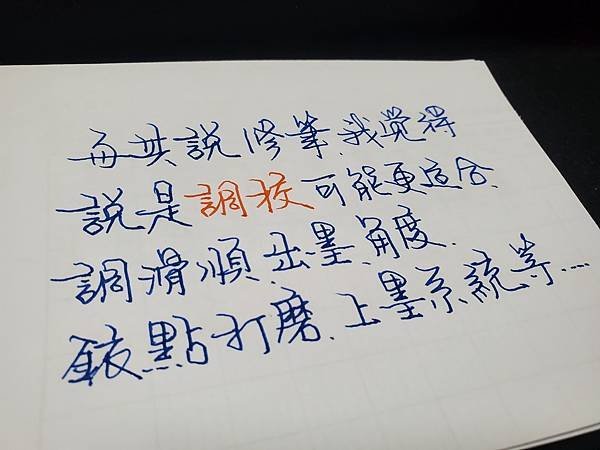 與其說修筆、我覚得
說是調校可能更适合、
調滑順、出墨、角度、
酸點打磨、上墨系統等....